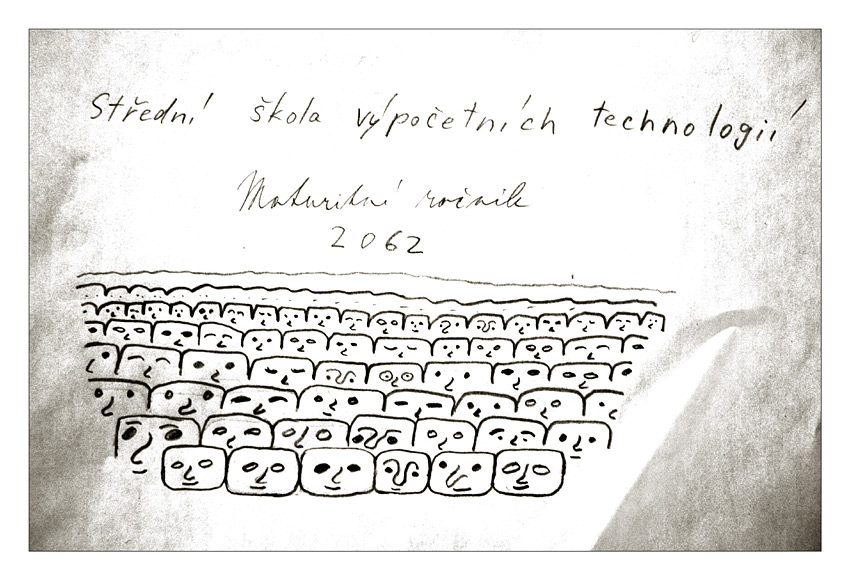 Střední škola výpočetních technologií
Maturitní ročník
2062